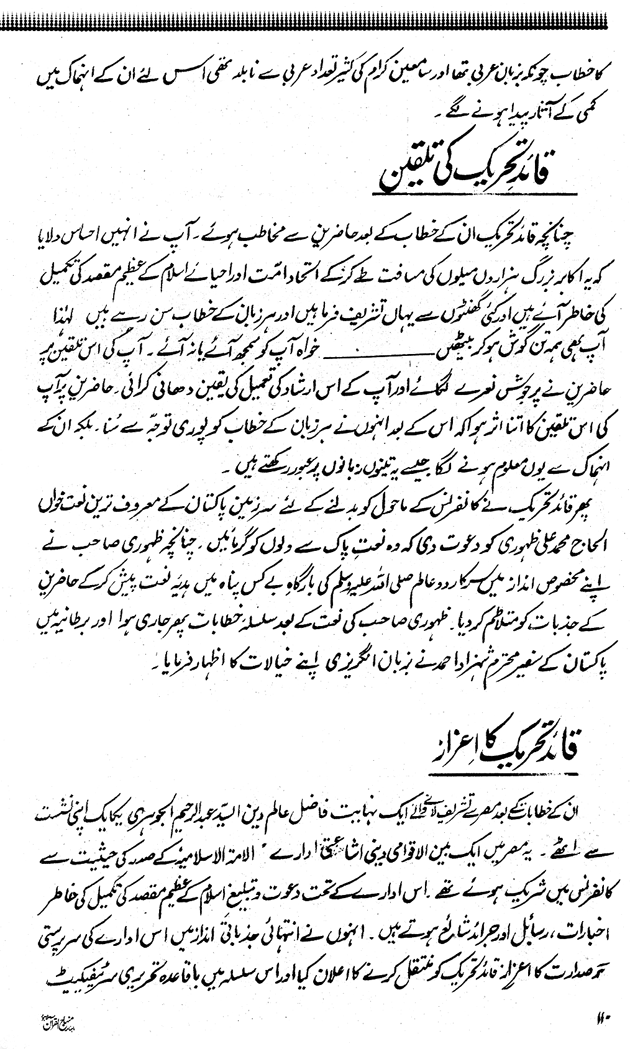 کا خطاب چونکہ بزبان عربی تھا اور سامعین کرام کی کثیر تعداد عربی سے نابلد تھی اس لئے ان کے انہماک میں
کمی کے آثار پیدا ہونے لگے ۔
قائد تحریک کی تلقین
چنانچہ قائد تحریک ان کے خطاب کے بعد حاضرین سے مخاطب ہوئے ۔ آپ نے انہیں احساس دلایا
کہ یہ اکابر بزرگ ہزاروں میلوں کی مسافت طے کر کے اتحاد امت اور احیائے اسلام کے عظیم مقصد کی تکمیل
کی خاطر آئے ہیں اور کئی گھنٹوں سے یہاں تشریف فرما ہیں اور ہر زبان کے خطاب سن رہے ہیں لہٰذا
آپ بھی ہمہ تن گوش ہو کر بیٹھیں ــــــــــــ خواہ آپ کو سمجھ آئے یا نہ آئے ۔ آپ کی اس تلقین پر
حاضرین نے پرجوش نعرے لگائے اور آپ کے اس ارشاد کی تعمیل کی یقین دھانی کرائی ۔ حاضرین پر آپ
کی اس تلقین کا اتنا اثر ہوا کہ اس کے بعد انہوں نے ہر زبان کے خطاب کو پوری توجہ سے سُنا ۔ بلکہ ان کے
انہماک سے یوں معلوم ہونے لگا جیسے یہ تینوں زبانوں پر عبور رکھتے ہیں ۔
پھر قائد تحریک نے کانفرنس کے ماحول کو بدلنے کے لئے سرزمین پاکستان کے معروف ترین نعت خواں
الحاج محمد علی ظہوری کو دعوت دی کہ وہ نعتِ پاک سے دلوں کو گرمائیں ۔ چنانچہ ظہوری صاحب نے
اپنے مخصوص انداز میں سرکار دو عالم صلی اللہ علیہ وسلم کی بارگاہِ بے کس پناہ میں ہدیہ نعت پیش کر کے حاضرین
کے جذبات کو متلاطم کر دیا ۔ ظہوری صاحب کی نعت کے بعد سلسلہ خطابات پھر جاری ہوا اور برطانیہ میں
پاکستان کے سفیر محترم شہزاد احمد نے بزبان انگریزی اپنے خیالات کا اظہار فرمایا ۔
قائد تحریک کا اعزاز
ان کے خطاب کے بعد مصر سے تشریف لانے والے ایک نہایت فاضل عالم دین السید عبدالرحیم الجوسری یکایک اپنی نشست
سے اٹھے ۔ یہ مصر میں ایک بین الاقوامی دینی اشاعتی ادارے " الامتہ الاسلامیۃ کے صدر کی حیثیت سے
کانفرنس میں شریک ہوئے تھے ۔ اس ادارے کے تحت دعوت و تبلیغ اسلام کے عظیم مقصد کی تکمیل کی خاطر
اخبارات، رسائل اور جرائد شائع ہوتے ہیں ۔ انہوں نے انتہائی جذباتی انداز میں اس ادارے کی سرپرستی
صدارت کا اعزاز قائد تحریک کو منتقل کرنے کا اعلان کیا اور اس سلسلہ میں باقاعدہ تحریری سرٹیفکیٹ
۱۱۰
منہاج القرآن